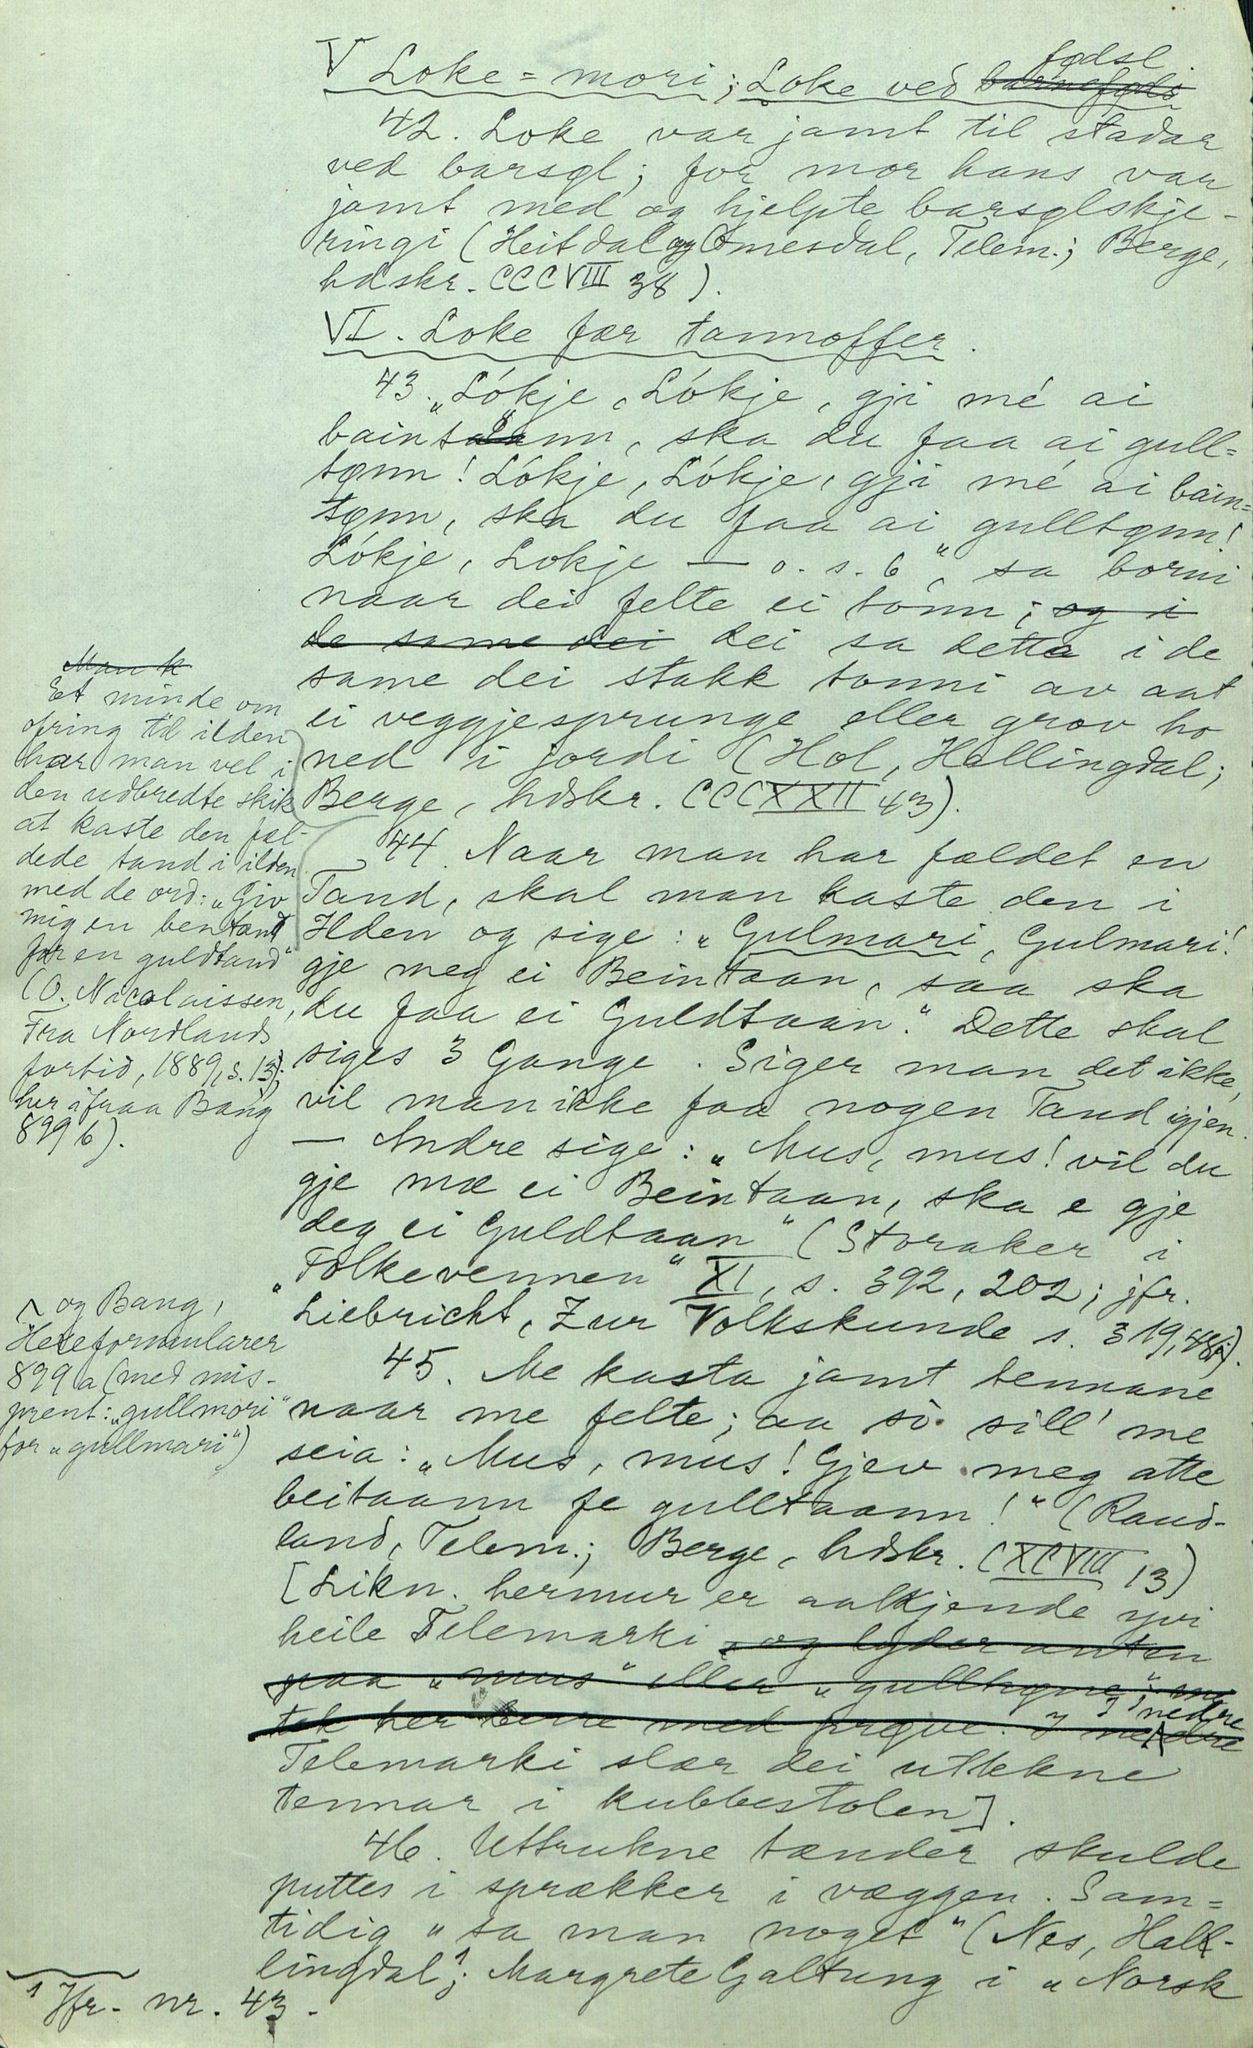 V Loke = mori; Loke ved barnefødsl fødsl
42. Loke var jamt til stadar
ved barsøl; for mor hans var
jamt med og hjelpte barsølskje-
ringi (Heitdal og Åmesdal, Telem.; Berge,
hdskr. CCCVIII 38).
VI. Loke fær tannoffer.
43. „Lókje, Lókje, gji mé ai
baintønn, ska du faa ai gull=
tønn! Lókje, Lókje, gji mé ai bain=
tønn, ska du faa ai gulltønn!
Lókje, Lokje — o. s. b“, sa borni
naar dei felte ei tònn; og i
de same dei dei sa detta i de
same dei stakk tonni av aat
ei veggjesprunge eller grov ho
ned i jordi (Hol, Hallingdal;
Berge, hdskr. CCCXXII 43).
44. Naar man har fældet en
Tand, skal man kaste den i
Ilden og sige: „Gulmari, Gulmari!
gje meg ei Beintaan, saa ska
du faa ei Guldtaan.“ Dette skal
siges 3 Gange. Siger man det ikke,
vil man ikke faa nogen Tand igjen.
— Andre sige: „Mus, mus! vil du
gje mæ ei Beintaan, ska e gje
deg ei Guldtaan“ (Storaker i
„Folkevennen“ XI, s. 392, 202; jfr.
Liebricht, Zur Volkskunde s. 319,48).
45. Me kasta jamt tennane
naar me felte; aa so sill' me
seia: „Mus, mus! Gjev meg atte
beitaann fe gulltaann!“ (Raud-
land, Telem.; Berge, hdskr. CXCVIII 13)
[Likn. hermur er aalkjende yvi
heile Telemarki og lyder anten
paa „mus“ eller „gullhøne“;
tek her berre med prøve. I nedre
Telemarki slær dei uttekne
tennar i kubbestolen].
46. Uttrukne tænder skulde
puttes i sprækker i væggen. Sam=
tidig „sa man noget“ (Nes, Hal-
lingdal¹; Margrete Galtung i „Norsk
Man k
Et minde om
ofring til ilden
har man vel i
den udbredte skik
at kaste den fæl-
dede tand i ilden
med de ord: „Giv
mig en bentand
for en guldtand“
(O. Nicolaissen,
Fra Nordlands
fortid, 1889, s. 13;
her ifraa Bang
899 b).
og Bang,
Hexeformularer
899 a (med mis-
prent: „gullmori“
for „gullmari“)
¹ Jfr. nr. 43.